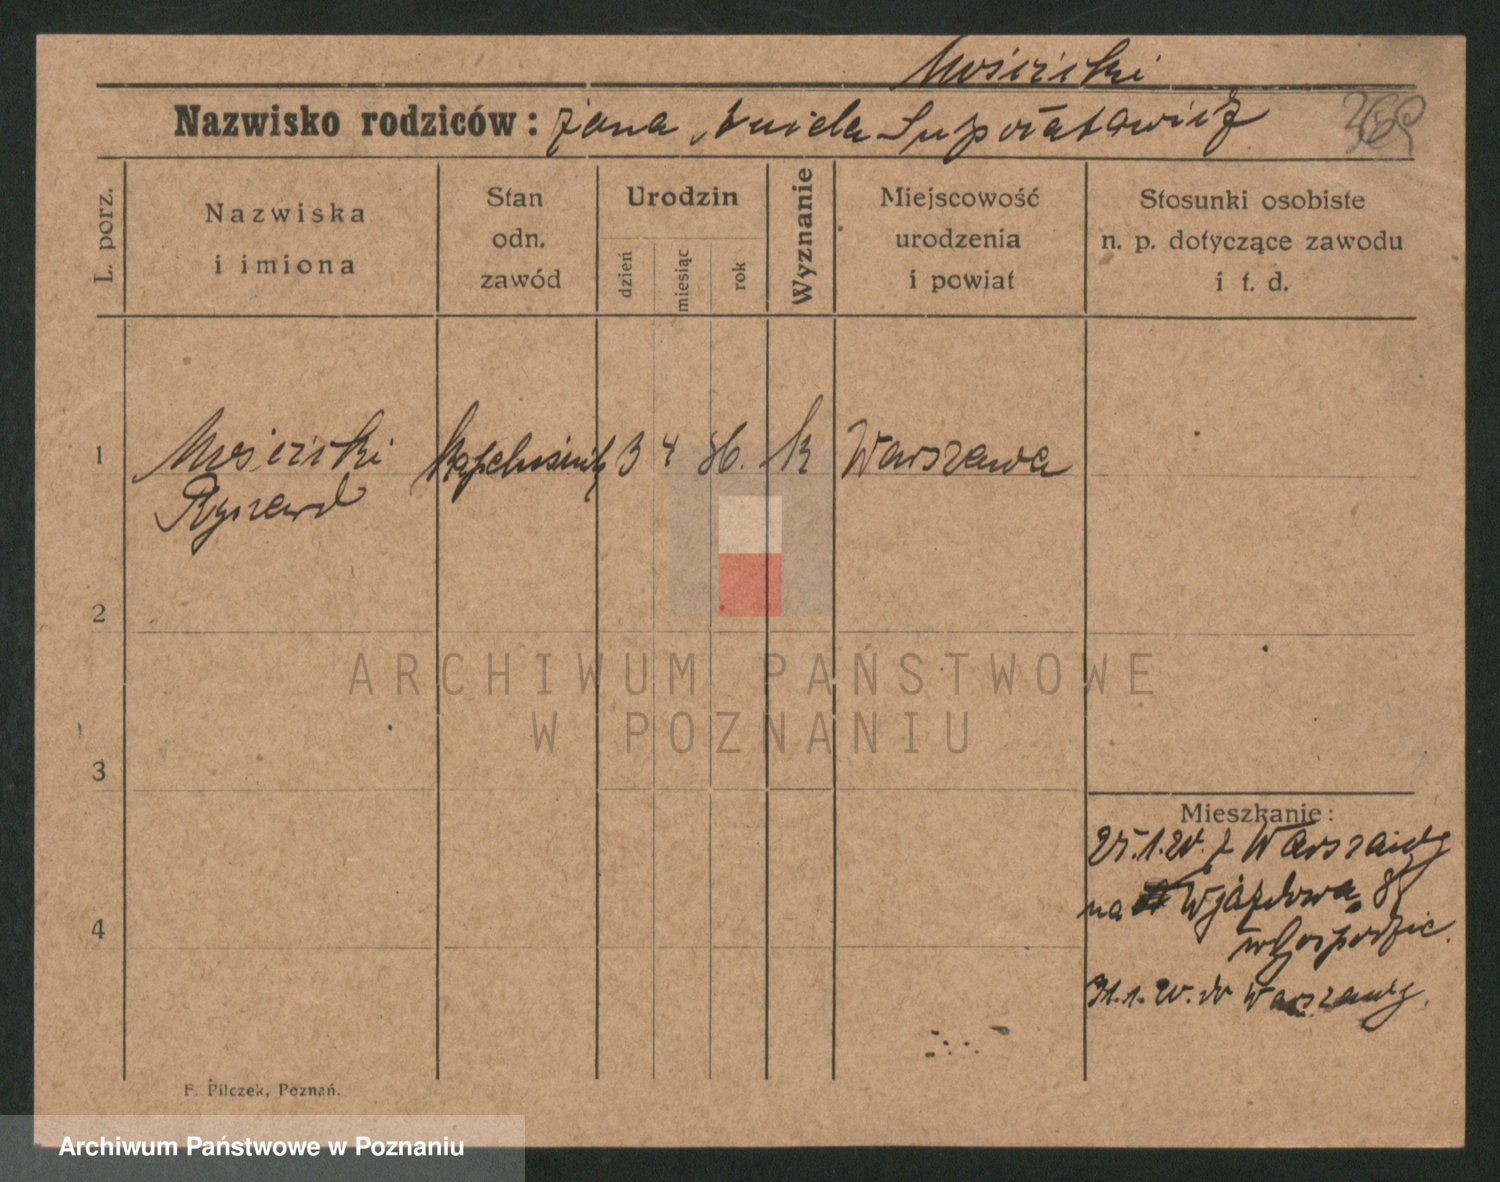 Mościcki
Nazwisko rodziców: Jana, Aniela
L. porz.
Nazwiska
i imiona
Stan
odn.
zawód
Urodzin
dzień
miesiąc
rok
Wyznanie
Miejscowość
urodzenia
i powiat
Stosunki osobiste
n. p. dotyczące zawodu
i t. d.
1 Mościcki 3 4 86. k Warszawa
Ryszard
2
3
4
Mieszkanie:
25.1.20. z Warszawy
na Wjazdowa 8
31.1.20. do Warszawy.
F. Pilczek, Poznań.
ARCHIWUM PAŃSTWOWE
W POZNANIU
Archiwum Państwowe w Poznaniu